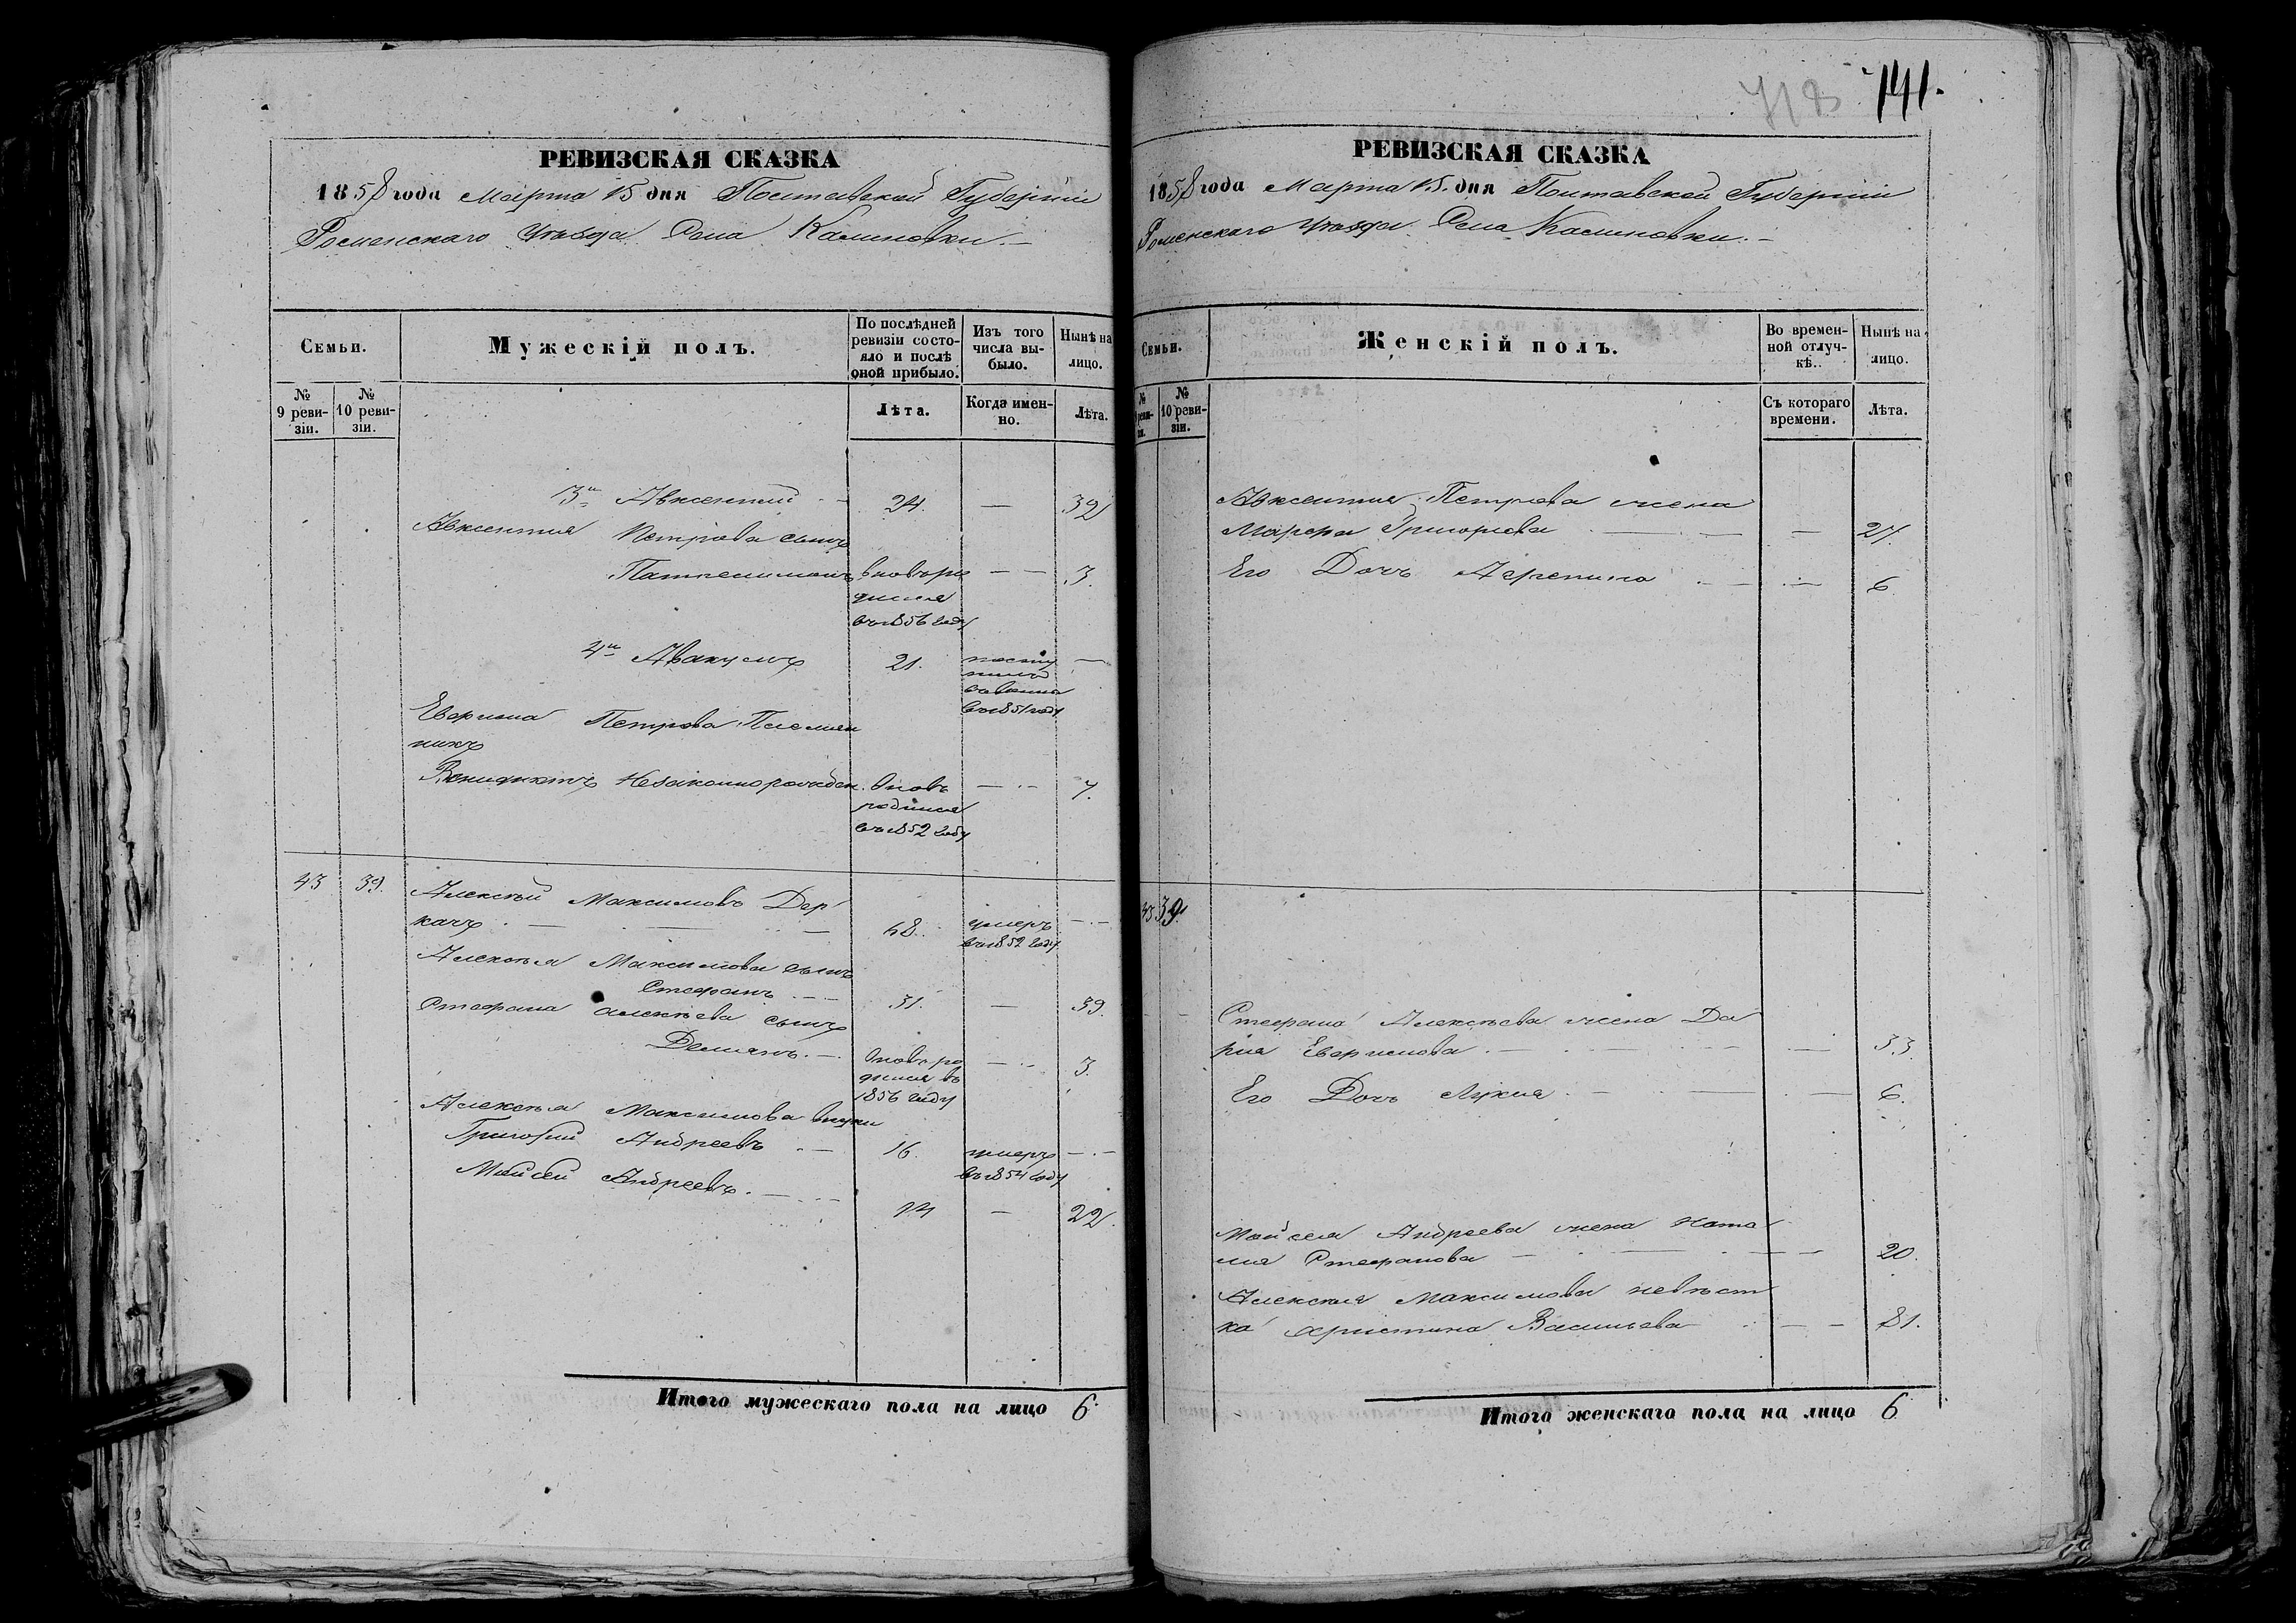 РЕВИЗСКАЯ СКАЗКА
1858 года Марта 15 дня Полтавской Губерніи
Роменскаго Уѣзда Села Калиновки.
Семьи.
Мужескій полъ.
По послѣдней ревизіи состояло и послѣ оной прибыло.
Изъ того числа выбыло.
Нынѣ на лицо.
№ 9 ревизіи.
№ 10 ревизіи.
Лѣта.
Когда именно.
Лѣта.
3й Авксентий 24. — 32
Авксентия Петрова сынъ
Пантелимонъ вновь ро — — 3.
дился
въ 1856 году
4й Авакумъ 21. посту —
пилъ
въ 1851 году
Петрова Племян
никъ
Венидиктъ Незаконнорожден. Вновь — 7.
родился
въ 1852 году
43 39. Алексѣй Максимовъ Дер
качъ 48. умеръ —
въ 1852 году
Алексѣя Максимова сынъ
Стефанъ 31. — 39.
Стефана Алексѣева сынъ
Демианъ. Вновь ро — 3.
дился въ
1856 году
Алексѣя Максимова внуки
Григорий Андреевъ 16. умеръ —
въ 1854 году
Мойсей Андреевъ. 14 — 22.
Итого мужескаго пола на лицо 6.
718 141.
РЕВИЗСКАЯ СКАЗКА
1858 года Марта 15. дня Полтавской Губерніи
Роменскаго Уѣзда Села Калиновки.
Семьи.
Женскій полъ.
Во временной отлучкѣ..
Нынѣ на лицо.
№ 9 ревизіи.
№ 10 ревизіи.
Съ котораго времени.
Лѣта.
Авксентия Петрова жена
Марфа Григорьева — 27.
Его Дочь Агрепина — 6
43 39.
Стефана Алексѣева жена Да
рия — 33.
Его Дочь Лукия — 6.
Мойсея Андреева жена Ната
лия Стефанова — 20.
Алексѣя Максимова невѣст
ка Христина Васильева —
Итого женскаго пола на лицо 6